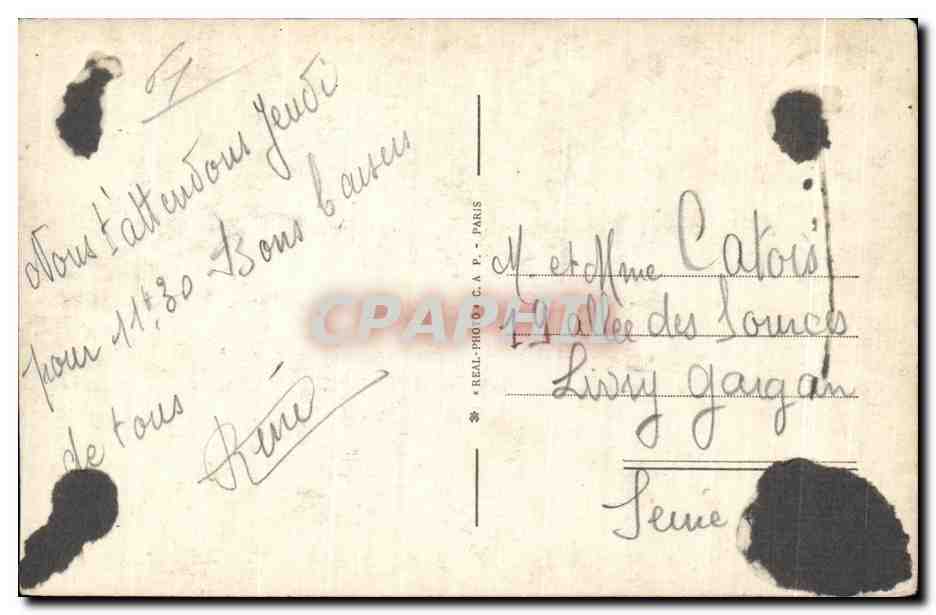 Nous t'attendons Jeudi
pour 11h30 Bons baisers
de tous
René
"REAL-PHOTO" C. A. P. - PARIS
M. et Mme Catois
19 allée des Sources
Livry Gargan
Seine
CPAPHIL